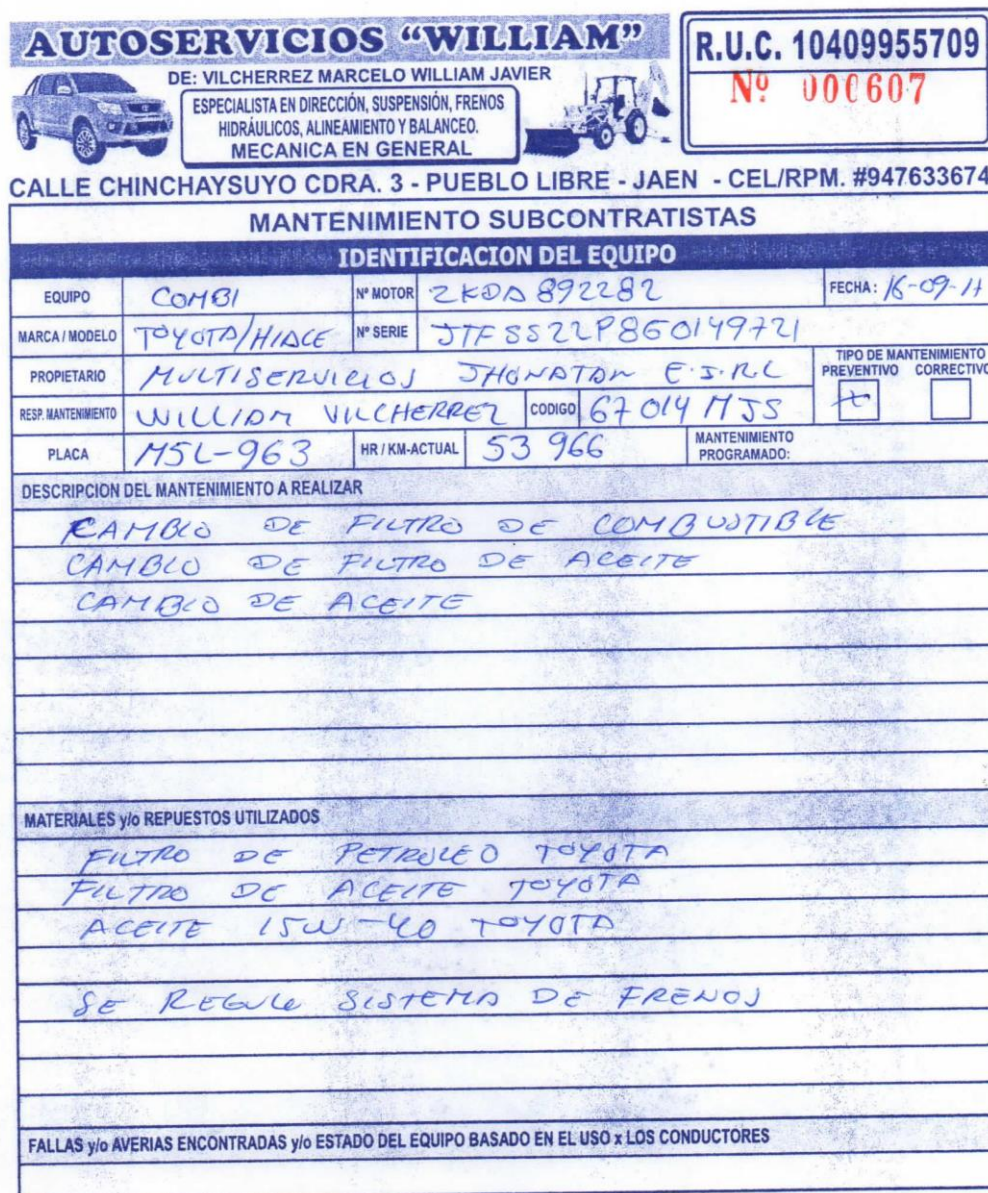 AUTOSERVICIOS “WILLIAM”
DE: VILCHERREZ MARCELO WILLIAM JAVIER
ESPECIALISTA EN DIRECCIÓN, SUSPENSIÓN, FRENOS
HIDRÁULICOS, ALINEAMIENTO Y BALANCEO.
MECANICA EN GENERAL
R.U.C. 10409955709
Nº 000607
CALLE CHINCHAYSUYO CDRA. 3 - PUEBLO LIBRE - JAEN - CEL/RPM. #947633674
MANTENIMIENTO SUBCONTRATISTAS
IDENTIFICACION DEL EQUIPO
EQUIPO COMBI Nº MOTOR 2KDA892282 FECHA: 16-09-17
MARCA / MODELO TOYOTA/HIACE Nº SERIE JTFSS22P860149721
PROPIETARIO MULTISERVICIOS JHONATAN E.I.R.L TIPO DE MANTENIMIENTO
PREVENTIVO CORRECTIVO
RESP. MANTENIMIENTO WILLIAM VILCHERREZ CODIGO 67014 MJS X
PLACA M5L-963 HR / KM-ACTUAL 53 966 MANTENIMIENTO PROGRAMADO:
DESCRIPCION DEL MANTENIMIENTO A REALIZAR
CAMBIO DE FILTRO DE COMBUSTIBLE
CAMBIO DE FILTRO DE ACEITE
CAMBIO DE ACEITE
MATERIALES y/o REPUESTOS UTILIZADOS
FILTRO DE PETROLEO TOYOTA
FILTRO DE ACEITE TOYOTA
ACEITE 15W-40 TOYOTA
SE REGULO SISTEMA DE FRENOS
FALLAS y/o AVERIAS ENCONTRADAS y/o ESTADO DEL EQUIPO BASADO EN EL USO x LOS CONDUCTORES